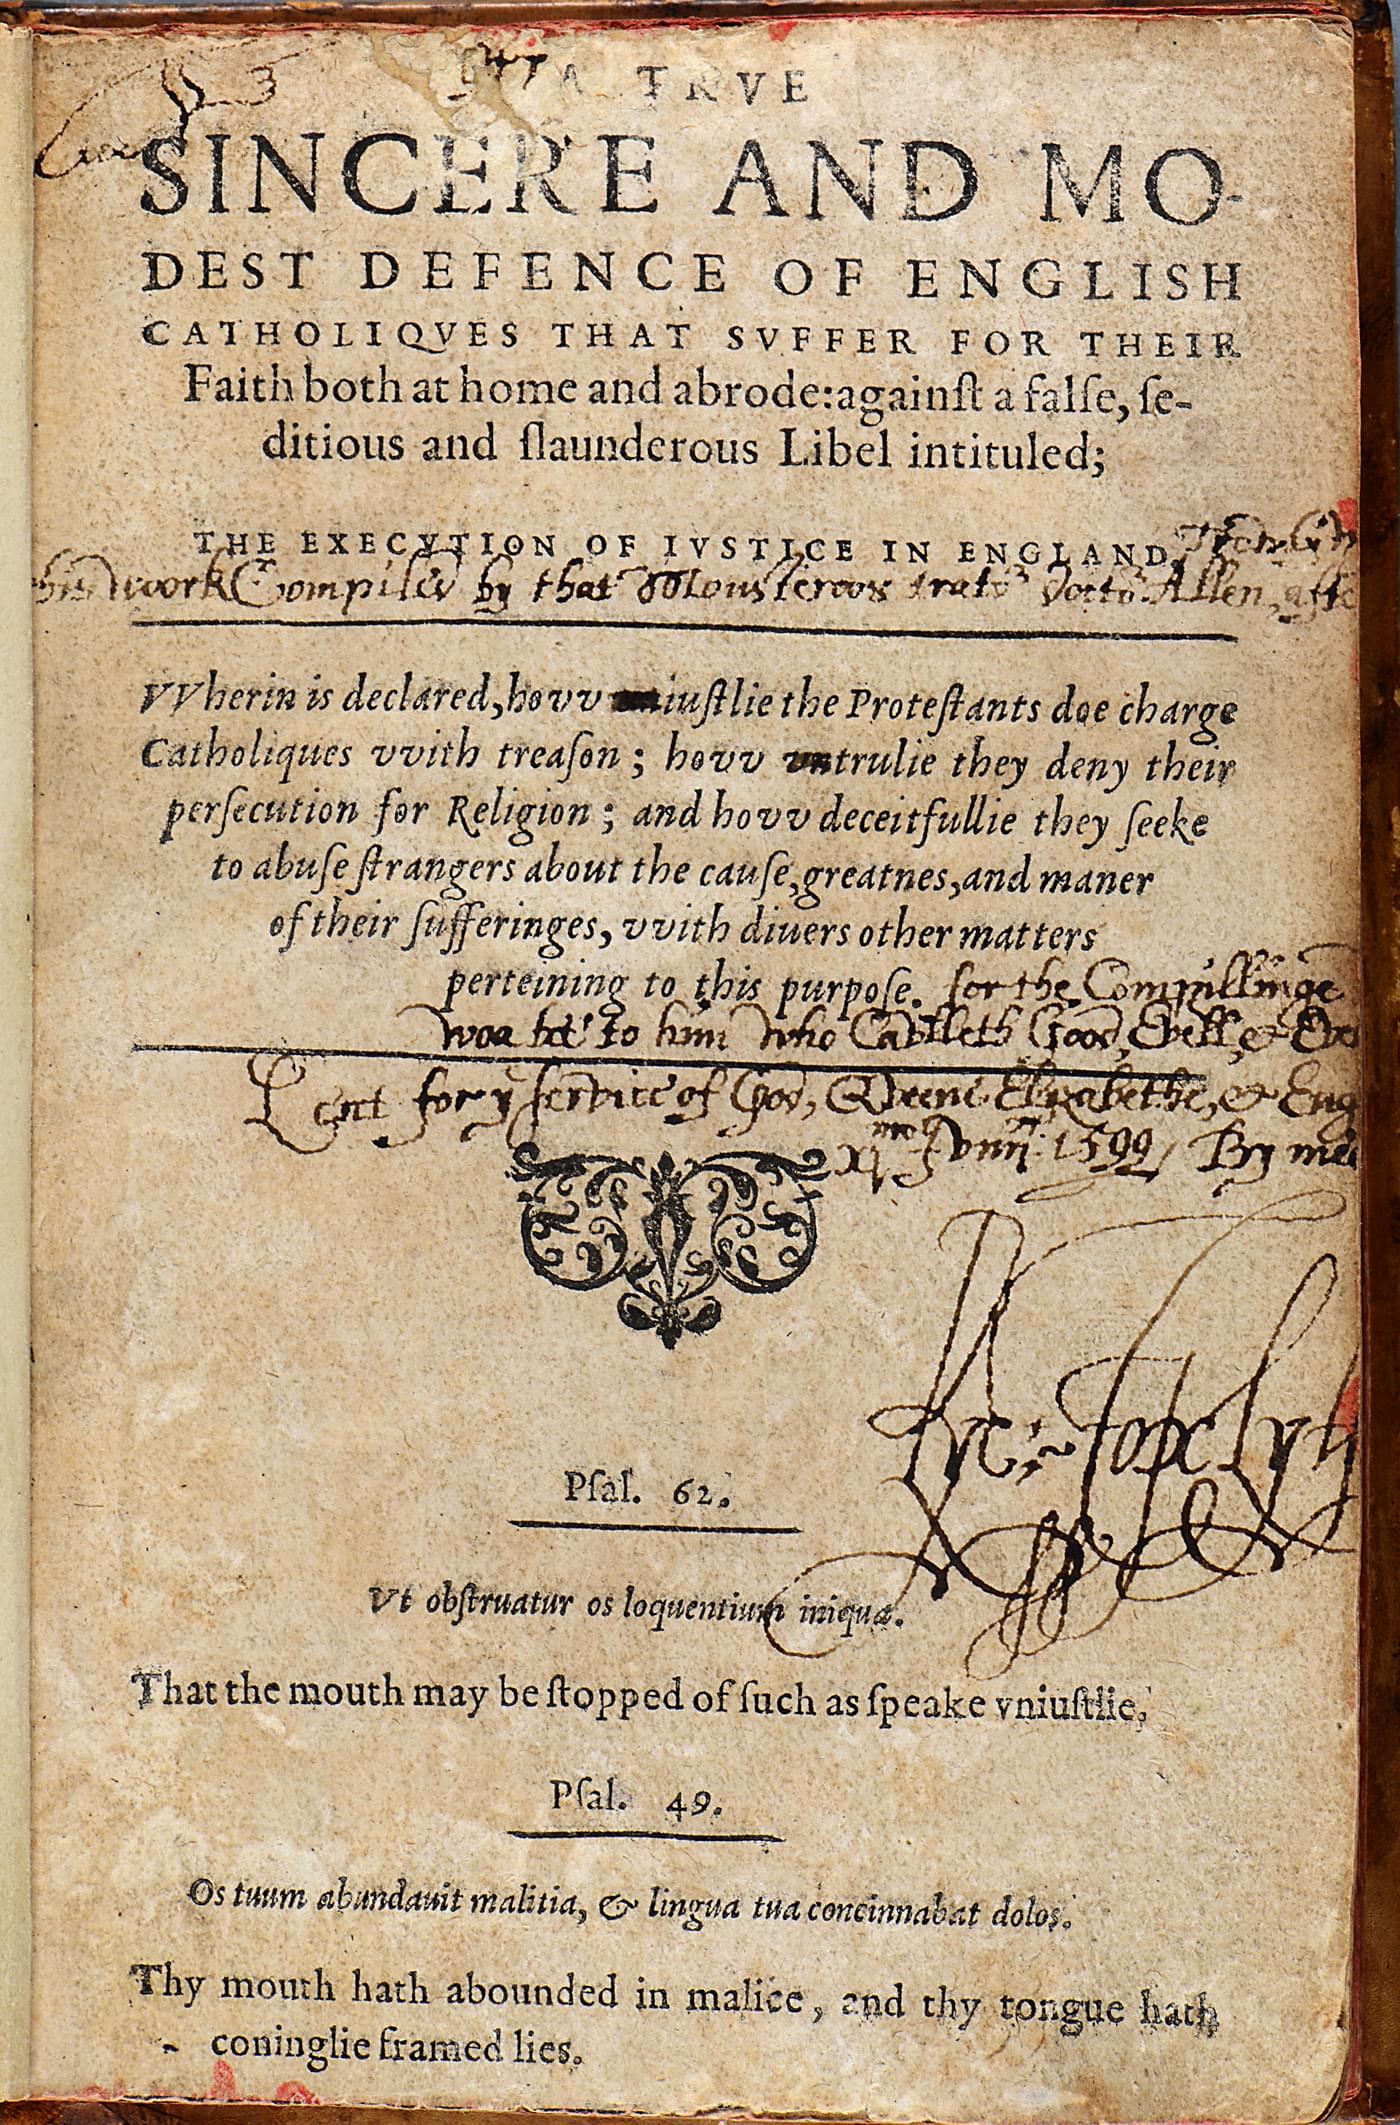 A TRVE
SINCERE AND MO-
DEST DEFENCE OF ENGLISH
CATHOLIQVES THAT SVFFER FOR THEIR
Faith both at home and abrode: againſt a falſe, ſe-
ditious and ſlaunderous Libel intituled;
THE EXECVTION OF IVSTICE IN ENGLAND.
work Compiled by that Monsterous trator Doctor Allen,
VVherin is declared, hovv iuſtlie the Proteſtants doe charge
Catholiques vvith treaſon; hovv vntrulie they deny their
perſecution for Religion; and hovv deceitfullie they ſeeke
to abuſe ſtrangers about the cauſe, greatnes, and maner
of their ſufferinges, vvith diuers other matters
perteining to this purpoſe. for the Compillinge
woa bee to him who Caulleth Good, Evell, &
Lent for yͤ service of God, Queene Elizabethe, & Eng
xjᵐᵒ Junij. 1599, By mee
Ric: Topclyff
Pſal. 62.
Vt obſtruatur os loquentium iniqua.
That the mouth may be ſtopped of ſuch as ſpeake vniuſtlie.
Pſal. 49.
Os tuum abundauit malitia, & lingua tua concinnabat dolos.
Thy mouth hath abounded in malice, and thy tongue hath
coninglie framed lies.